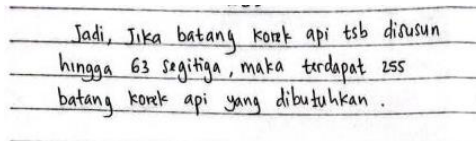 Jadi, Jika batang korek api tsb disusun
hingga 63 segitiga, maka terdapat 255
batang korek api yang dibutuhkan.